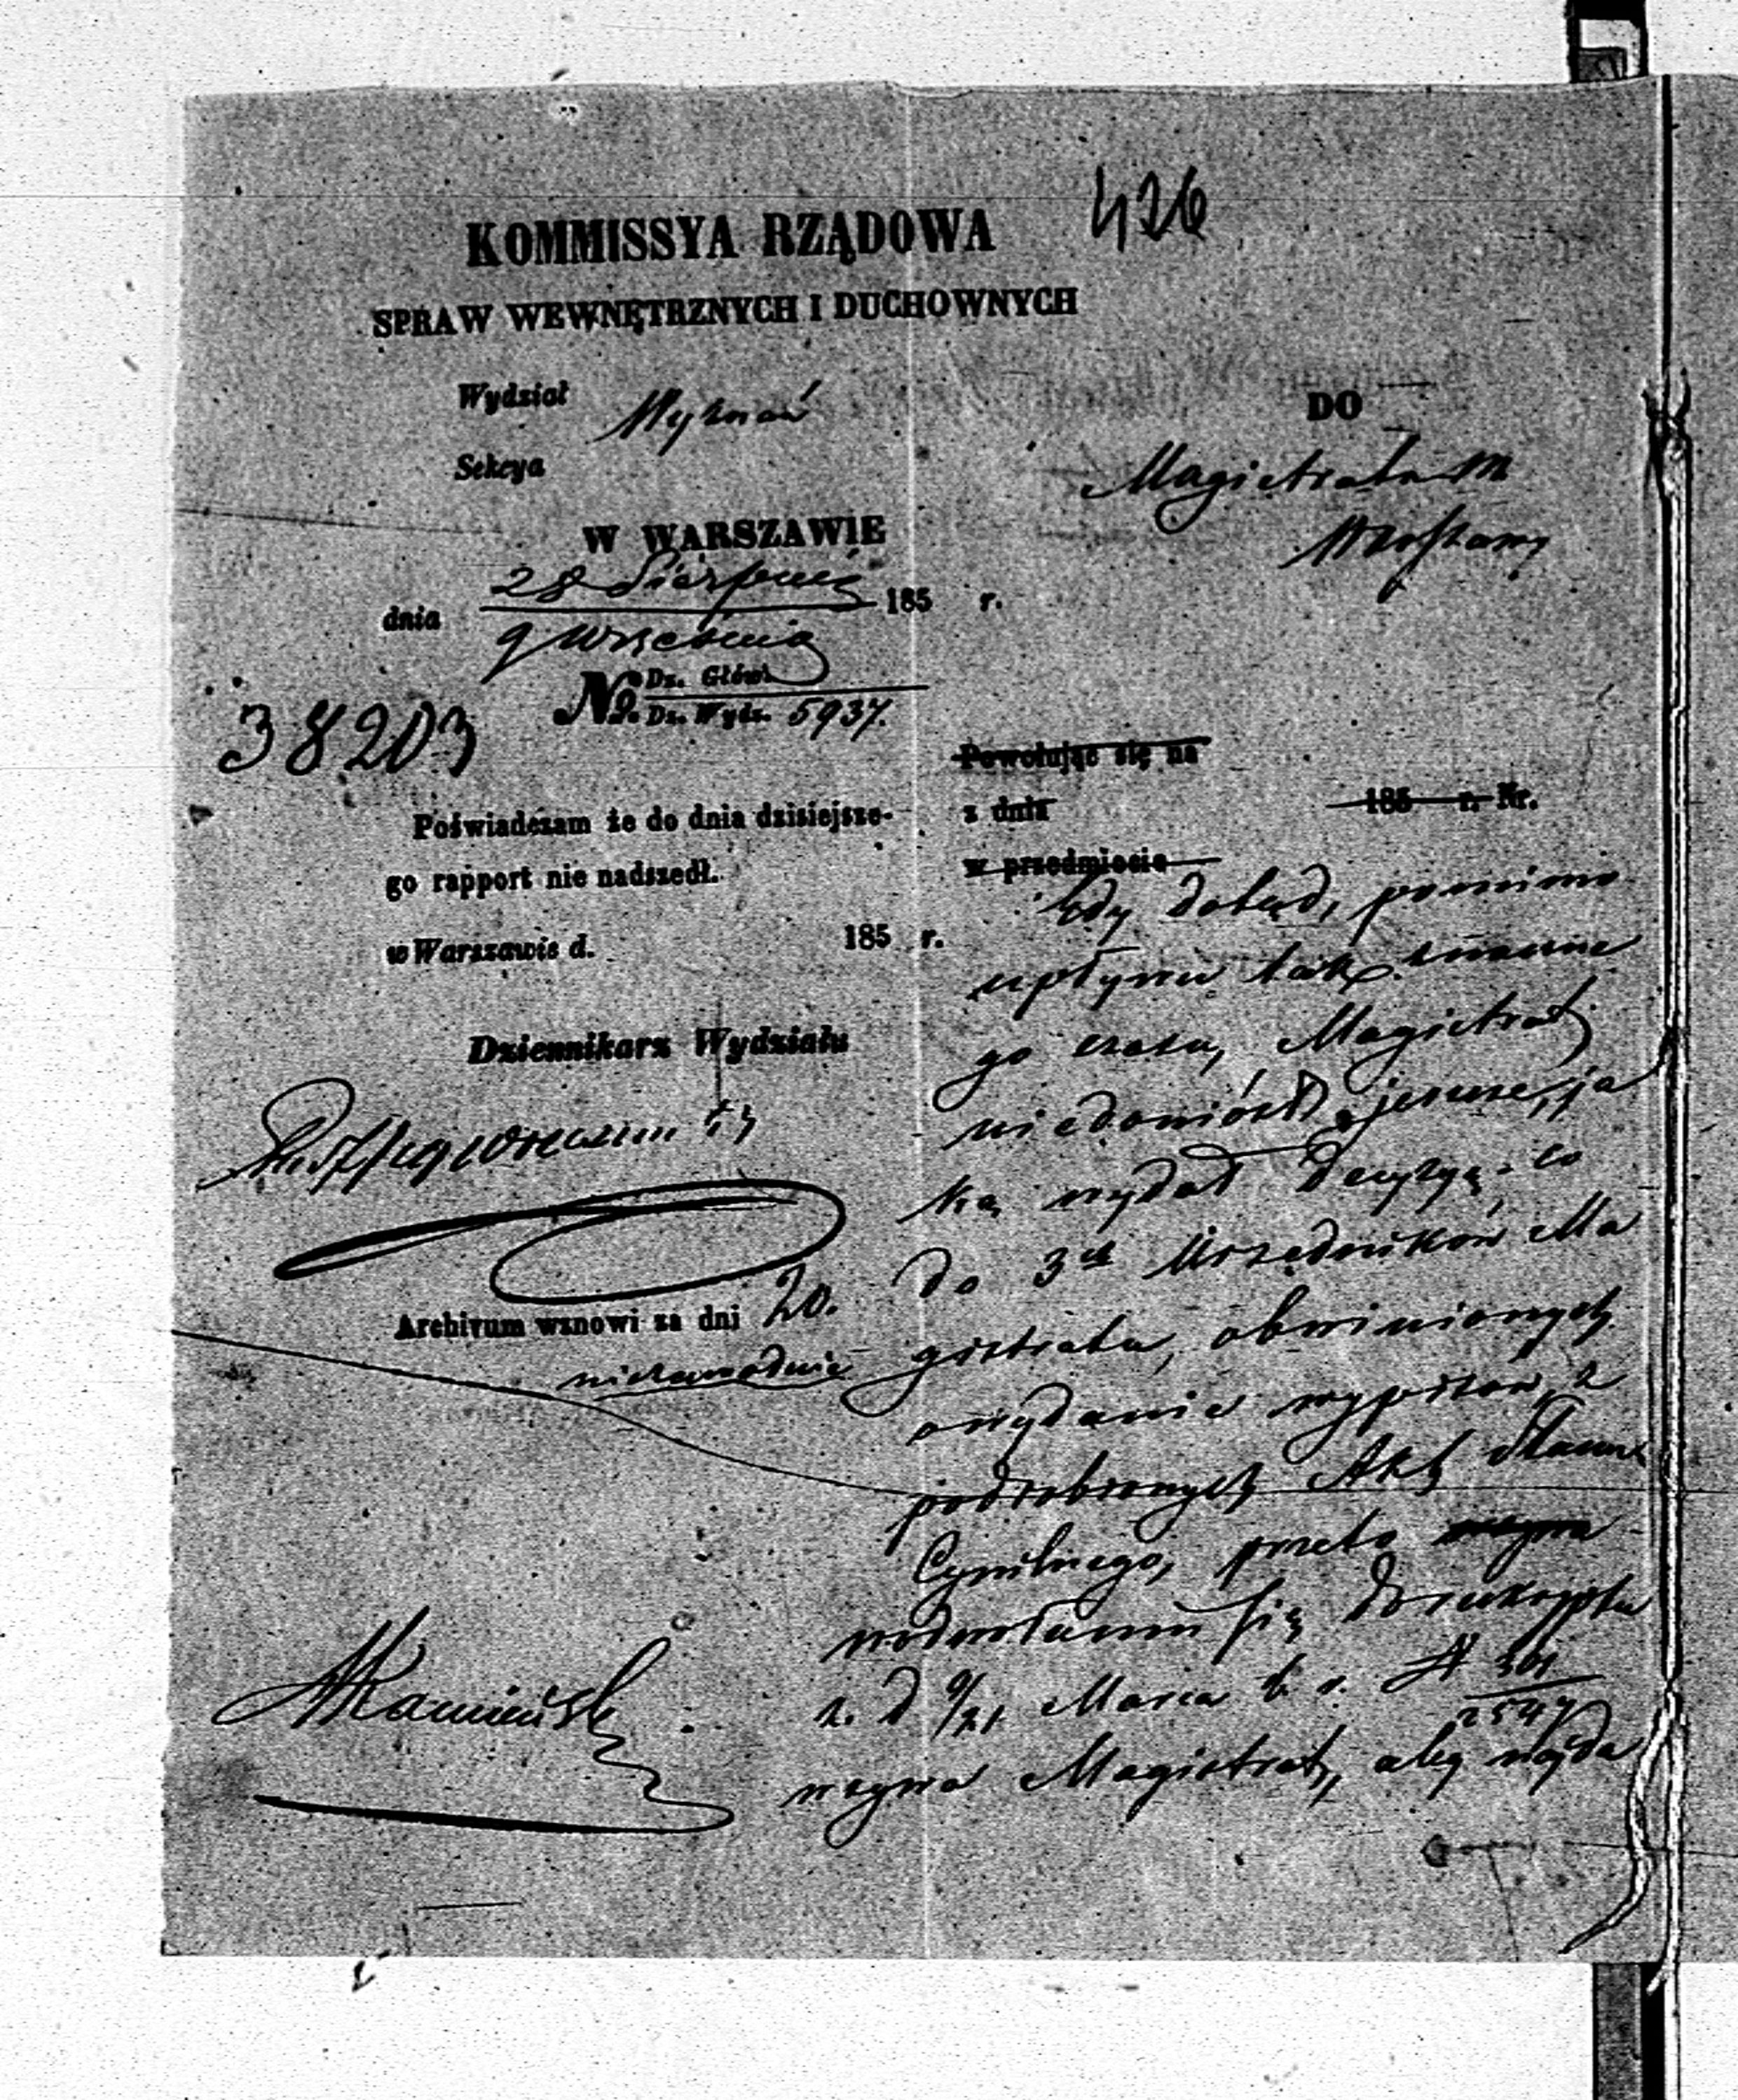 426
KOMMISSYA RZĄDOWA
SPRAW WEWNĘTRZNYCH I DUCHOWNYCH
Wydział Wyznań
Sekcya
W WARSZAWIE
dnia 28 Sierpnia 185 r.
9 Września
No. Dz. Główn.
Dz. Wydz. 5937.
38203
Poświadczam że do dnia dzisiejsze-
go rapport nie nadszedł.
w Warszawie d. 185 r.
Dziennikarz Wydziału
Archivum wznowi za dni 20.
niezawodnie
AKamiński
DO
Magistratu M
Warszawy
Powołując się na
z dnia 185 r. Nr.
w przedmiocie
Gdy dotąd, pomimo
upływu tak znaczne
go czasu, Magistrat
niedoniósł jeszcze, ja
ką wydał decyzyą co
do 3ch Urzędników Ma
gistratu, obwinionych
o wydanie wypisów z
podrobionych Akt Stanu
Cywilnego, przeto
w odwołaniu się do reskryptu
z d. 9/21 Marca b. r. N 301/2547
wzywa Magistrat, aby wyda